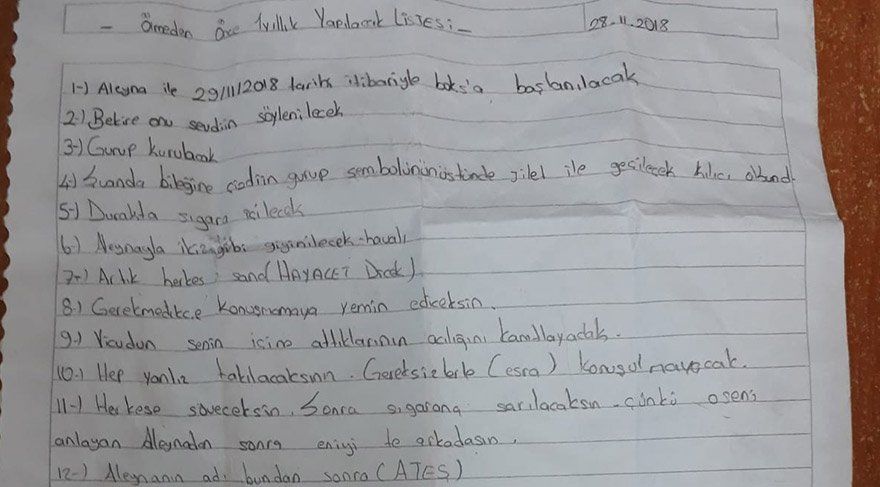 - Ölmeden Önce 1 yıllık Yapılacak LİSTESİ -
28.11.2018
1-) Aleyna ile 29/11/2018 tarihi itibariyle boks'a başlanılacak
2-) Bekire onu sevdiin söylenilecek
3-) Gurup kurulacak
4-) Şuanda bileğine çizdiin gurup sembolününüstünde jilet ile geçilecek kılıcı
5-) Durakta sigara içilecek
6-) Aleynayla ikizgibi giyinilecek-havalı
7-) Artık herkes sana (HAYALET Dicek)
8-) Gerekmedikce konuşmamaya yemin ediceksin.
9-) Vicudun senin içine attıklarının acılığını kanıtlayacak.
10-) Hep yanlız takılacaksın. Gereksizlerle (esra) konuşulmayacak.
11-) Herkese söveceksin. Sonra sigarana sarılacaksın çünkü o seni
anlayan Aleynadan sonra eniyi te arkadaşın.
12-) Aleynanın adı bundan sonra (ATEŞ)